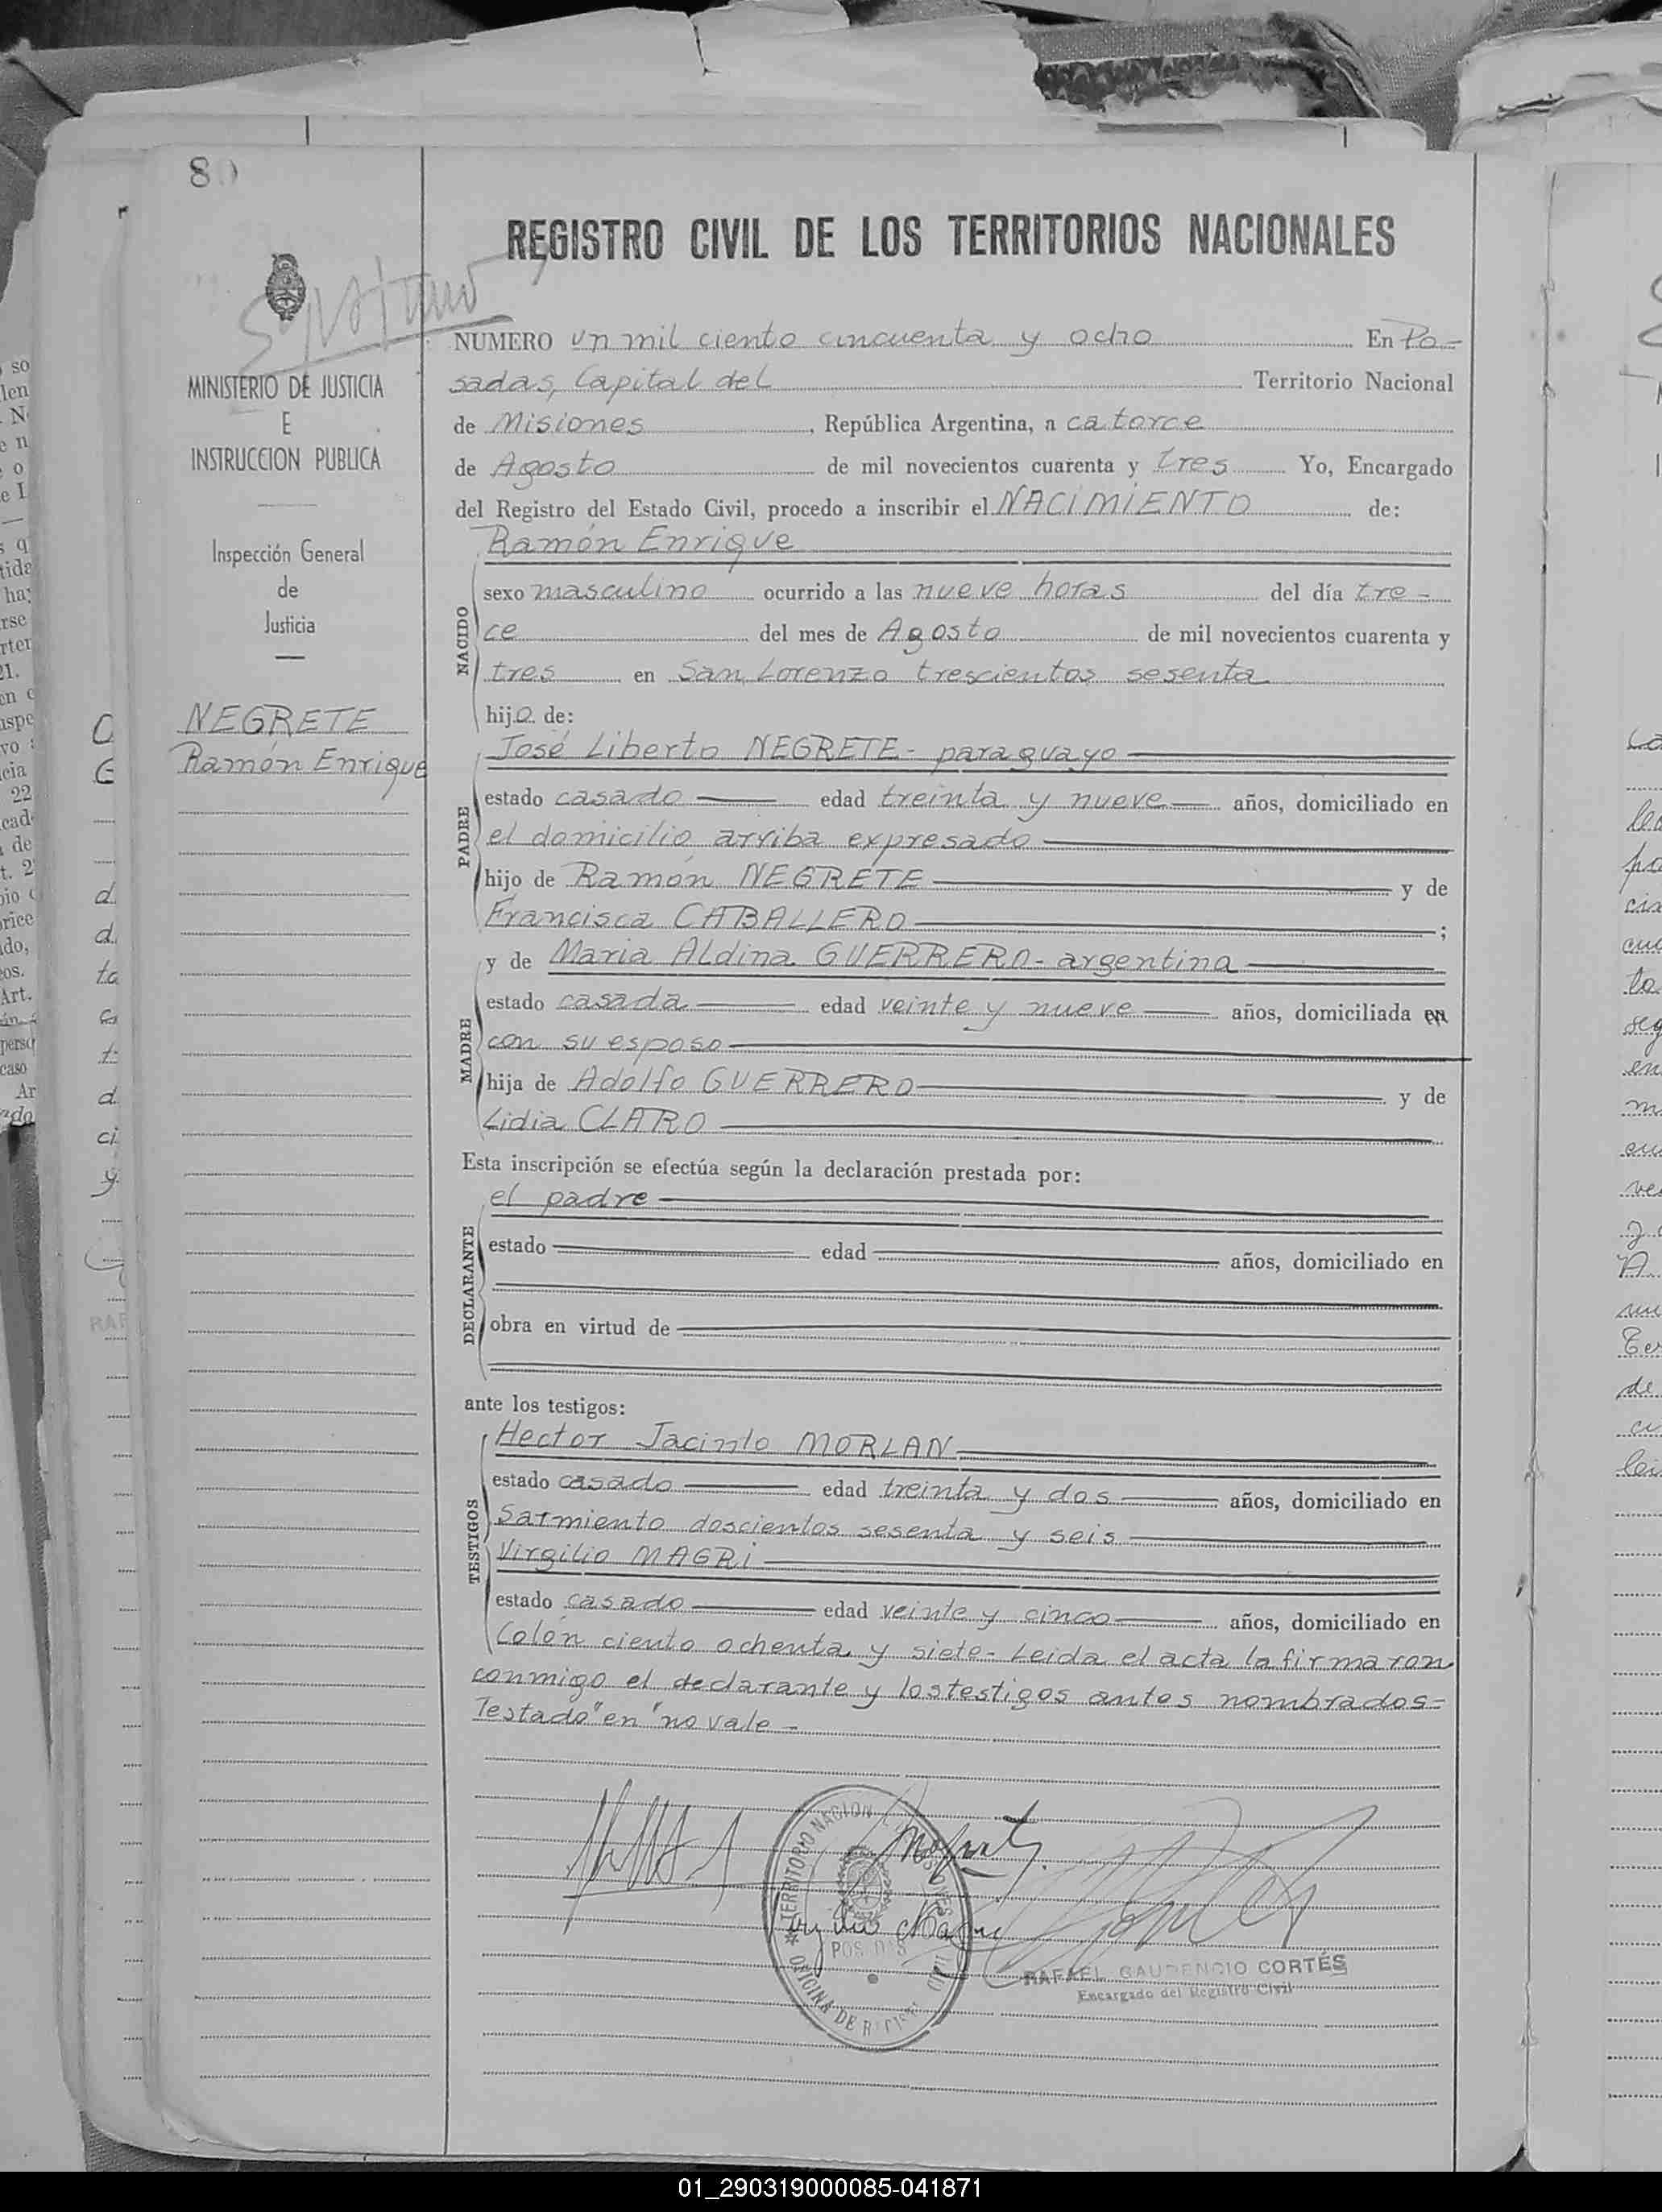 80
REGISTRO CIVIL DE LOS TERRITORIOS NACIONALES
MINISTERIO DE JUSTICIA
E
INSTRUCCION PUBLICA
Inspección General
de
Justicia
NEGRETE
Ramón Enrique
NUMERO un mil ciento cincuenta y ocho En Po-
sadas, Capital del Territorio Nacional
de Misiones, República Argentina, a catorce
de Agosto de mil novecientos cuarenta y tres Yo, Encargado
del Registro del Estado Civil, procedo a inscribir el NACIMIENTO de:
Ramón Enrique
NACIDO
sexo masculino ocurrido a las nueve horas del día tre-
ce del mes de Agosto de mil novecientos cuarenta y
tres en San Lorenzo trescientos sesenta
hijo de:
José Liberto NEGRETE - paraguayo
PADRE
estado casado edad treinta y nueve años, domiciliado en
el domicilio arriba expresado
hijo de Ramón NEGRETE y de
Francisca CABALLERO;
y de Maria Aldina GUERRERO - argentina
MADRE
estado casada edad veinte y nueve años, domiciliada en
con su esposo
hija de Adolfo GUERRERO y de
Lidia CLARO
Esta inscripción se efectúa según la declaración prestada por:
el padre
DECLARANTE
estado edad años, domiciliado en
obra en virtud de
ante los testigos:
Hector Jacinto MORLAN
TESTIGOS
estado casado edad treinta y dos años, domiciliado en
Sarmiento doscientos sesenta y seis
Virgilio MAGRI
estado casado edad veinte y cinco años, domiciliado en
Colón ciento ochenta y siete - Leida el acta la firmaron
conmigo el declarante y los testigos antes nombrados -
Testado "en" no vale -
TERRITORIO NACION
POSADAS
OFICINA DE CIVIL
RAFAEL GAUDENCIO CORTÉS
Encargado del Registro Civil
01_290319000085-041871